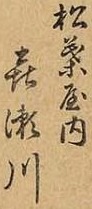 松葉屋内
喜瀬川